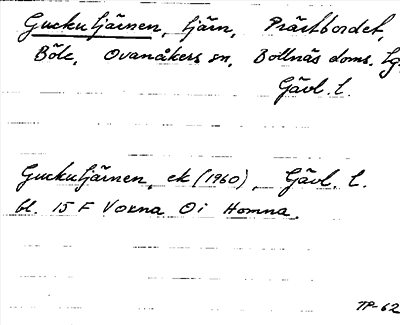 Guckutjärnen, tjärn, Prästbordet,
Böle, Ovanåkers sn, Bollnäs doms. tg.
Gävl. l.
Guckutjärnen, ek (1960), Gävl. l.
bl. 15 F Voxna Öi Homna.
TP-62